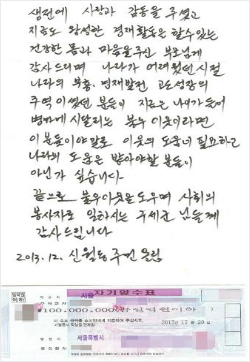 생전에 사랑과 감동을 주셨고
지금도 왕성한 경제활동을 할수있는
건강한 몸과 마음을주신 부모님께
감사드리며 나라가 어려웠던시절
나라의 부흥, 경제발전 고도성장의
주역이셨던 분들이 지금은 나이가들어
병마에 시달리는 불우이웃이라면
이분들이야말로 이웃의 도움이 필요하고
나라의 도움을 받아야할 분들이
아닌가 싶습니다.
끝으로 불우이웃을도우며 사회의
봉사자로 일하시는 구세군 님들께
감사드립니다
2013.12. 신월동 주민 올림
자기앞수표
서울
₩100,000,000
서울특별시